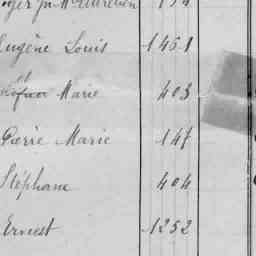 Eugène Louis 1451
Marie 403
Pierre Marie 147
Stéphane 404
Ernest 1252